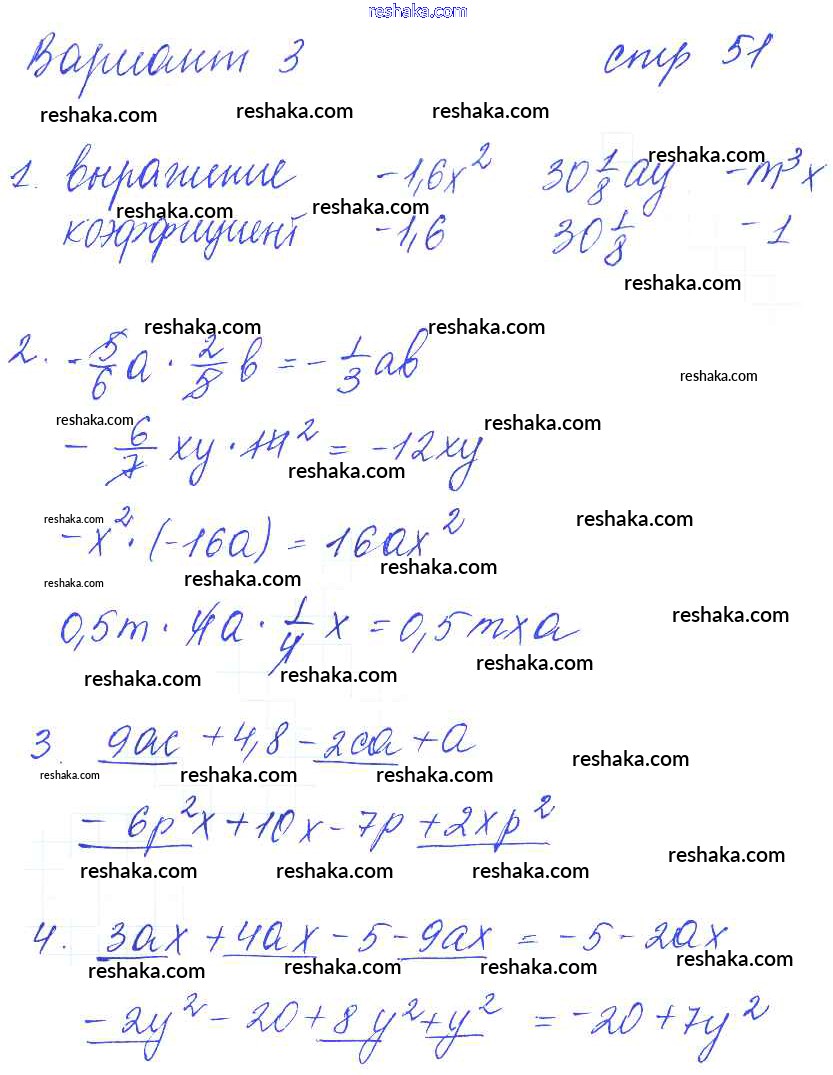 reshaka.com
Вариант 3 стр 51
reshaka.com reshaka.com reshaka.com
1. выражение -1,6x² 30 1/8 ay -m³x
reshaka.com
reshaka.com reshaka.com
коэффициент -1,6 30 1/8 -1
reshaka.com
reshaka.com reshaka.com
2. -5/6 a · 2/5 b = -1/3 ab
reshaka.com
reshaka.com reshaka.com
- 6/7 xy · 14 ² = -12xy
reshaka.com
reshaka.com reshaka.com
-x² · (-16a) = 16ax²
reshaka.com reshaka.com reshaka.com
reshaka.com
0,5m · 4a · 1/4 x = 0,5mxa
reshaka.com reshaka.com reshaka.com
3. 9ac + 4,8 - 2ca + a
reshaka.com
reshaka.com reshaka.com reshaka.com
- 6p²x + 10x - 7p + 2xp²
reshaka.com
reshaka.com reshaka.com reshaka.com
4. 3ax + 4ax - 5 - 9ax = -5 - 2ax
reshaka.com reshaka.com reshaka.com reshaka.com
-2y² - 20 + 8y² + y² = -20 + 7y²